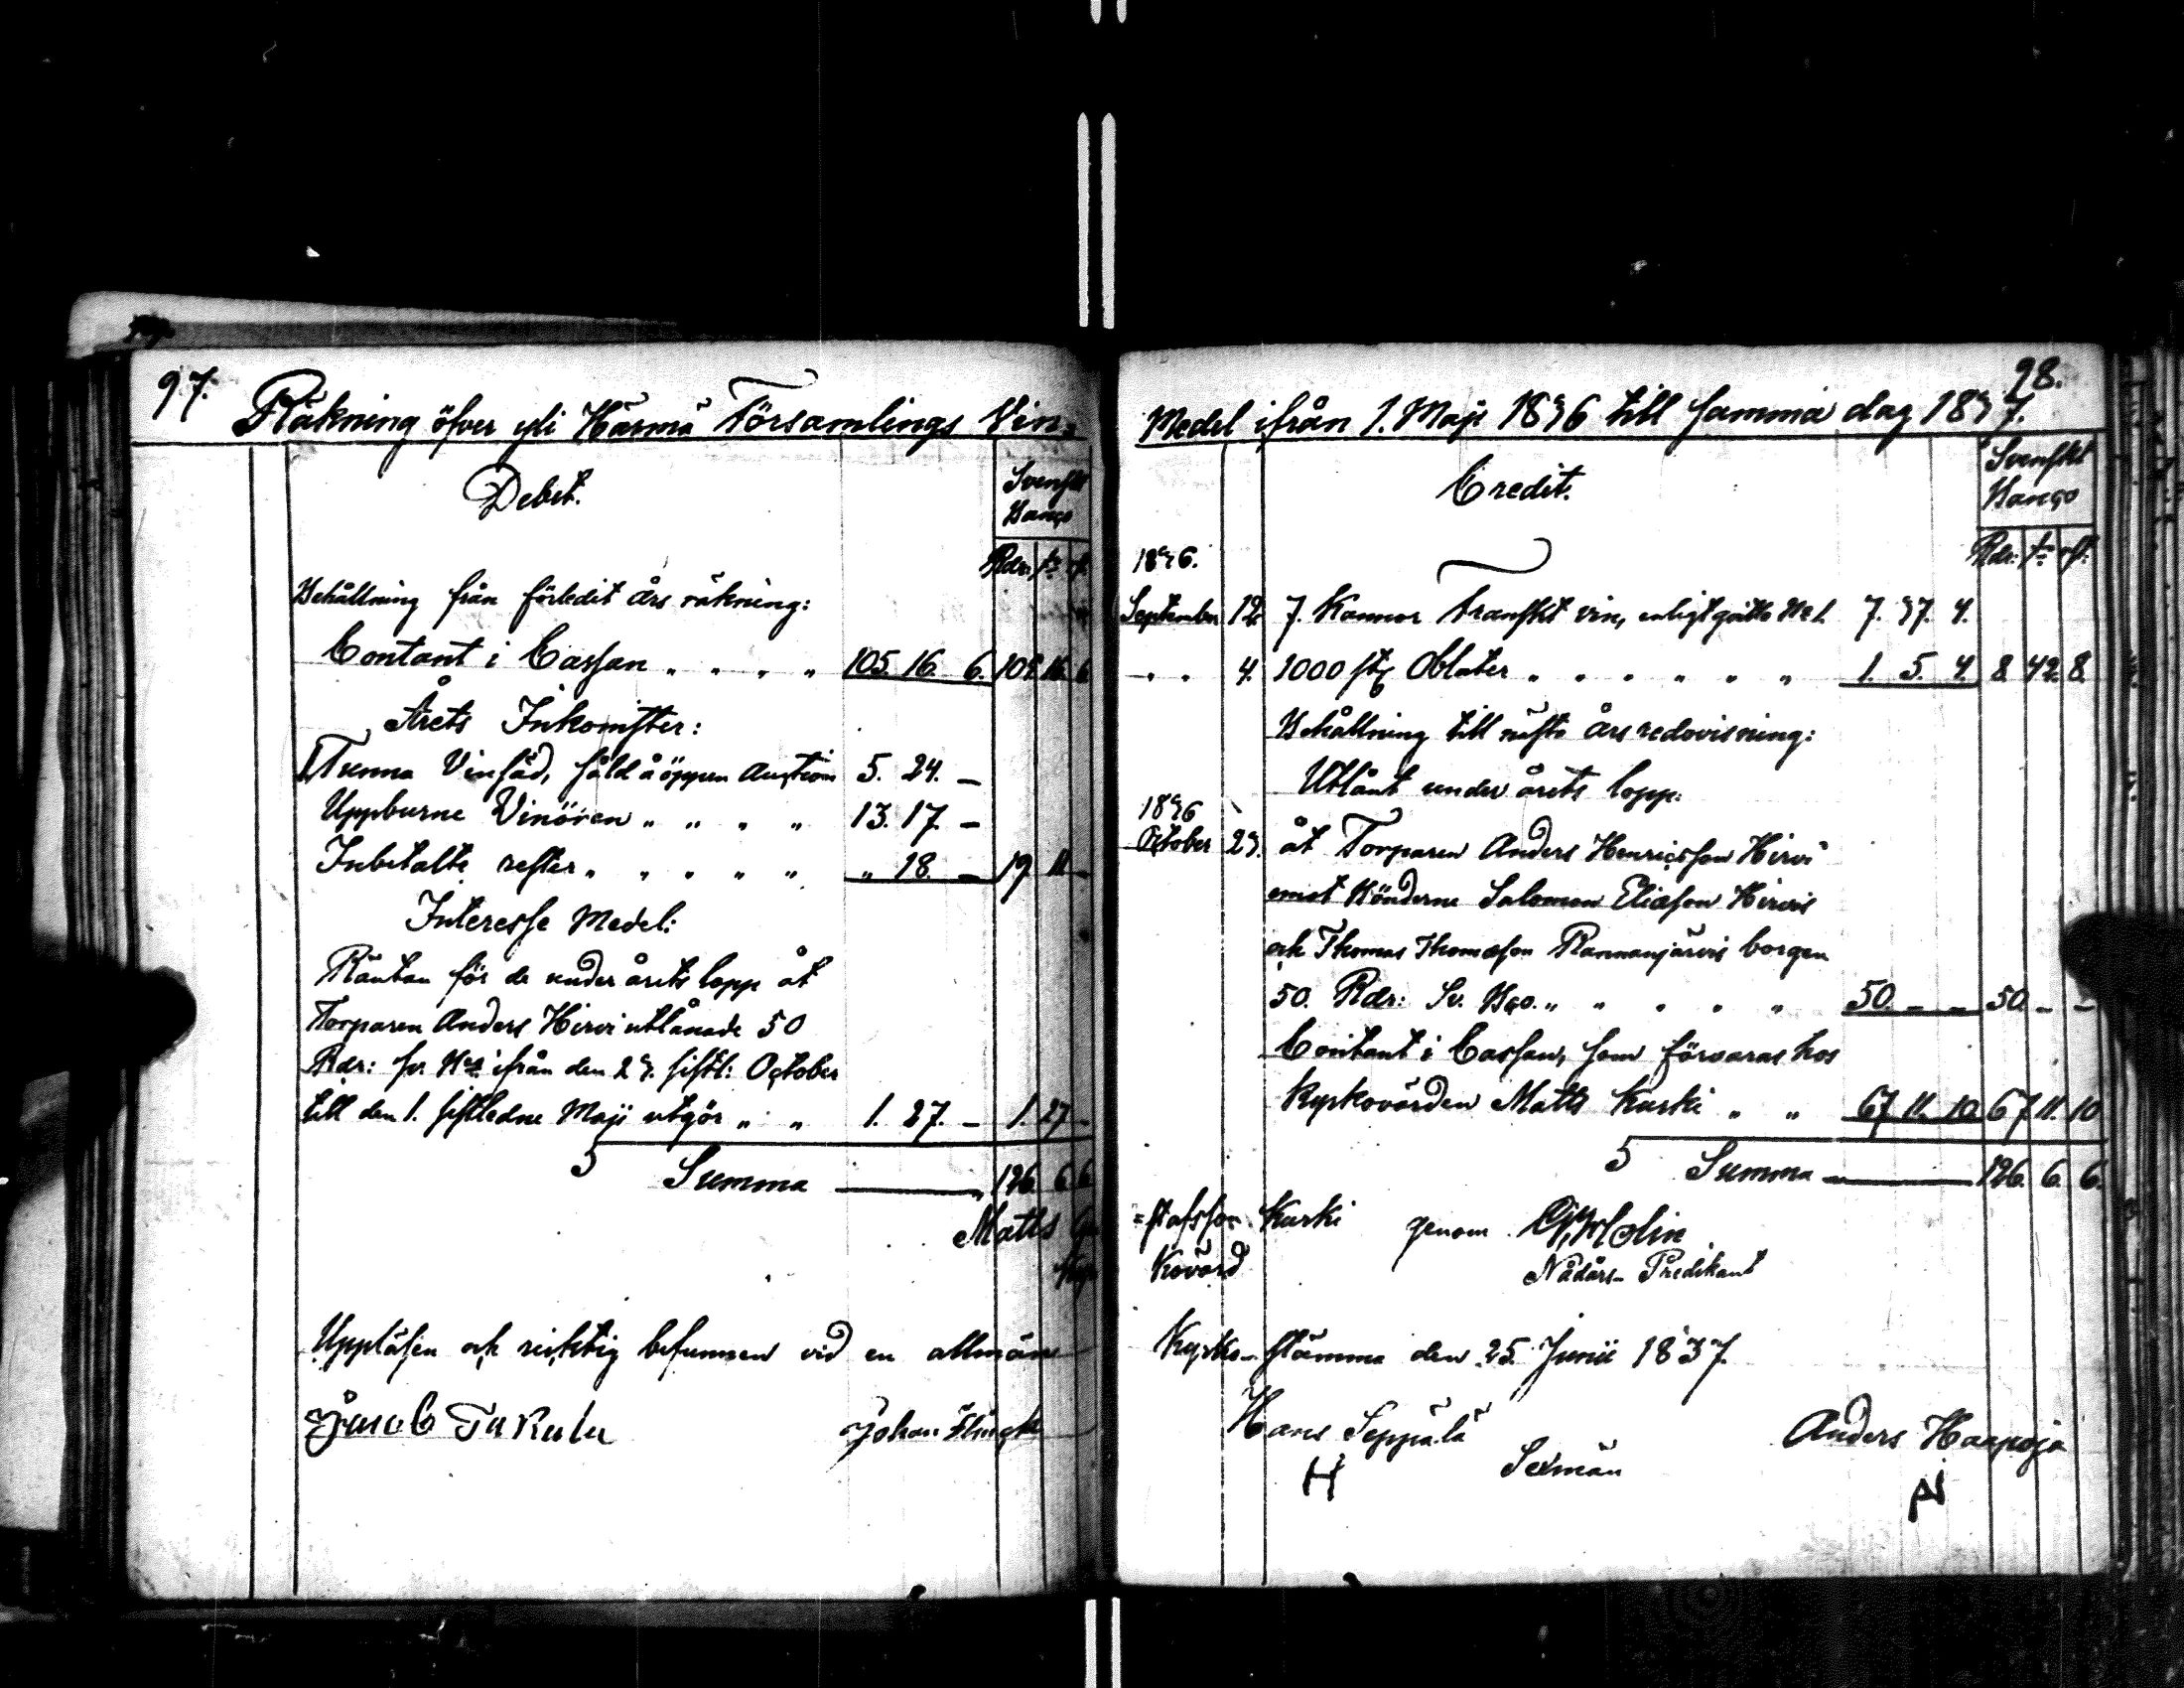 97.
Räkning öfver yli Härmä Församlings Vin=
Debet.
Svenskt
Banco
Rdr: s: rst:
Behållning från förledit års räkning:
Contant i Cassan " " " " 105. 16. 6. 105. 16. 6
Årets Inkomster:
1 Tunna Vinsäd, såld å öppen Auction 5. 24. –
Uppburne Vinören " " " " 13. 17. –
Inbetalte rester " " " " " " 18. – 19. 11. –
Interesse Medel:
Räntan för de under årets lopp åt
Torparen Anders Hirvi utlånade 50
Rdr: sv. Bco ifrån den 23. sistl: October
till den 1. sistledne Maji utgör " " 1. 27. – 1. 27 –
Summa 126. 6. 6
Matts
Uppläsen och richtig befunnen vid en allmän
Jacob Takala Johan Flinck
98.
Medel ifrån 1. Maji 1836 till samma dag 1837.
Credit.
Svenskt
Banco
Rdr: s: rst:
1836.
September 12. 7. Kannor Franskt vin, enligt qvitto No 1. 7. 37. 4.
" " 4. 1000 st Oblater " " " " " " 1. 5. 4. 8. 42. 8.
Behållning till nästa års redovisning:
Utlånt under årets lopp:
1836
October 23. åt Torparen Anders Henricsson Hirvi
emot Bönderne Salomon Eliasson Hirvis
och Thomas Thomasson Rannanjärvis borgen
50. Rdr: Sv. Bco. " " " " " 50. – – 50. – –
Contant i Cassan, som förvaras hos
Kyrkovärden Matts Kurki " " 67. 11. 10. 67. 11. 10
Summa 126. 6. 6.
=stafsson Kurki genom Holin
Kovärd Nådårs- Predikant
Kyrko- stämma den 25. Junii 1837.
Hans Seppälä Anders Haapoja
H Sexmän